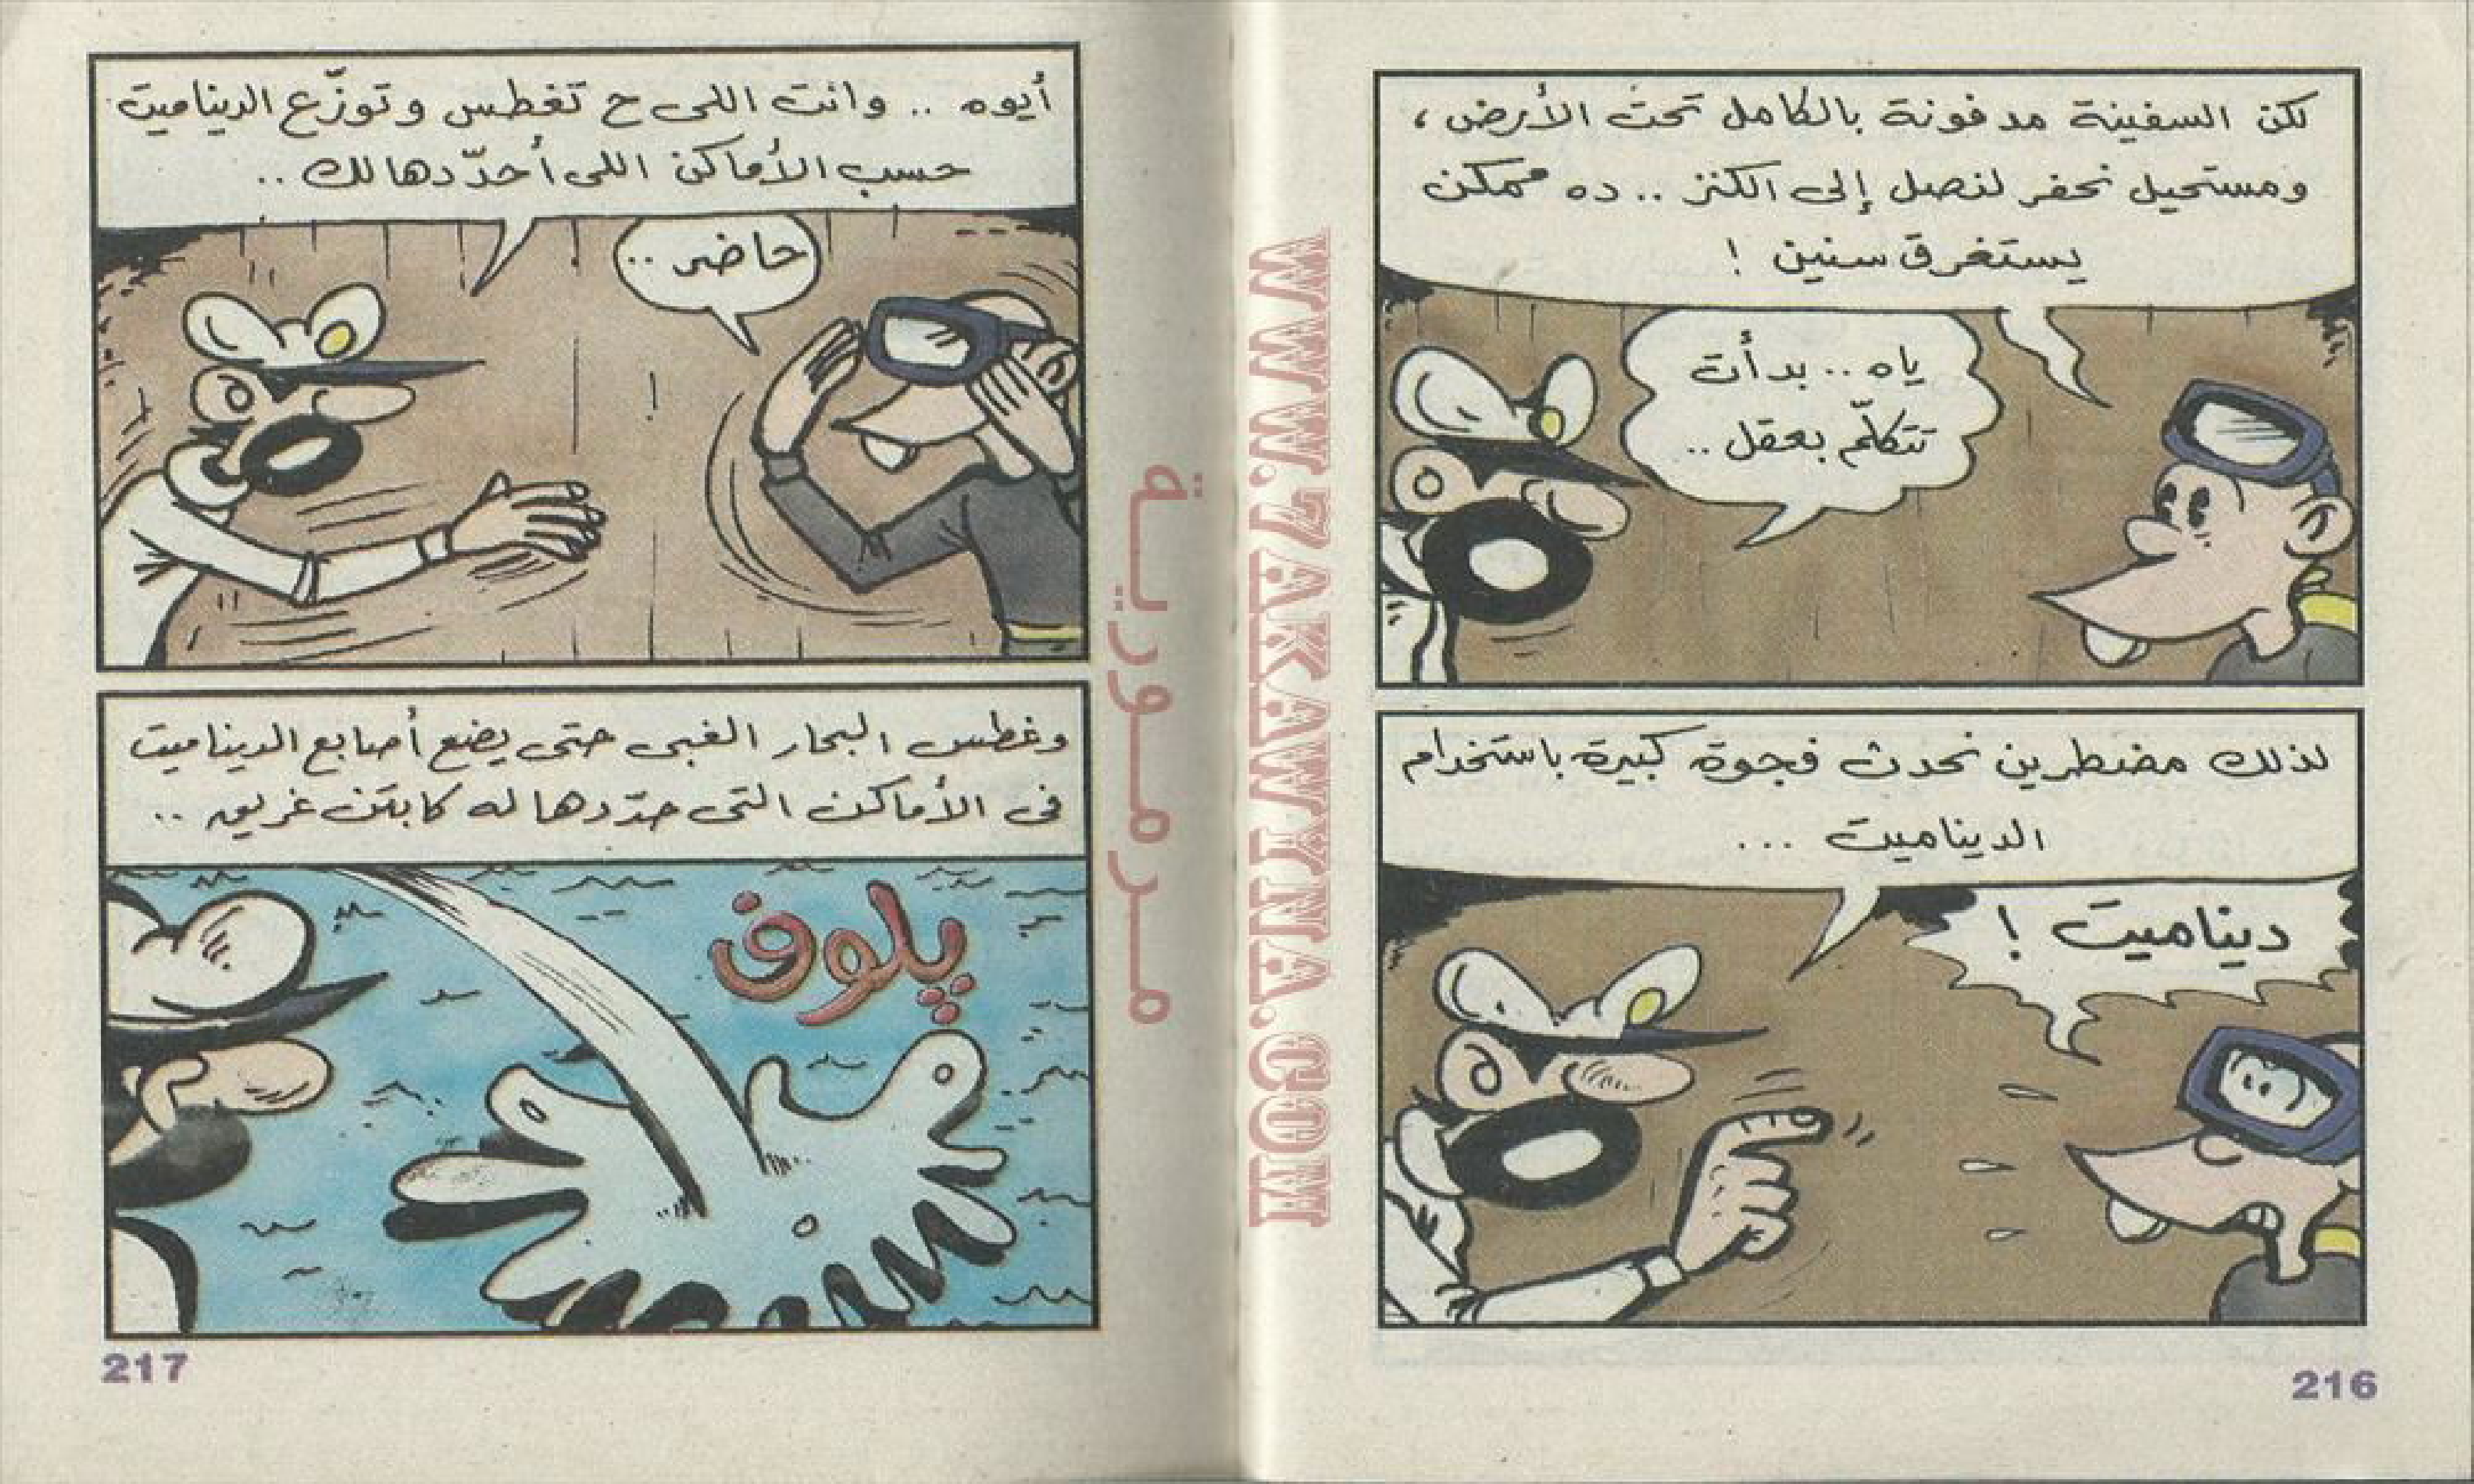 لكن السفينة مدفونة بالكامل تحت الأرض،
ومستحيل نحفر لنصل إلى الكنز .. ده ممكن
يستغرق سنين !
ياه .. بدأت
تتكلّم بعقل ..
لذلك مضطرين نحدث فجوة كبيرة باستخدام
الديناميت ...
ديناميت !
216
أيوه .. وانت اللى ح تغطس وتوزّع الديناميت
حسب الأماكن اللى أحدّدها لك ..
حاضر ..
وغطس البحار الغبى حتى يضع أصابع الديناميت
فى الأماكن التى حدّدها له كابتن غريق ..
پلوف
217
مرمورية
WWW.7AKAWYNA.COM